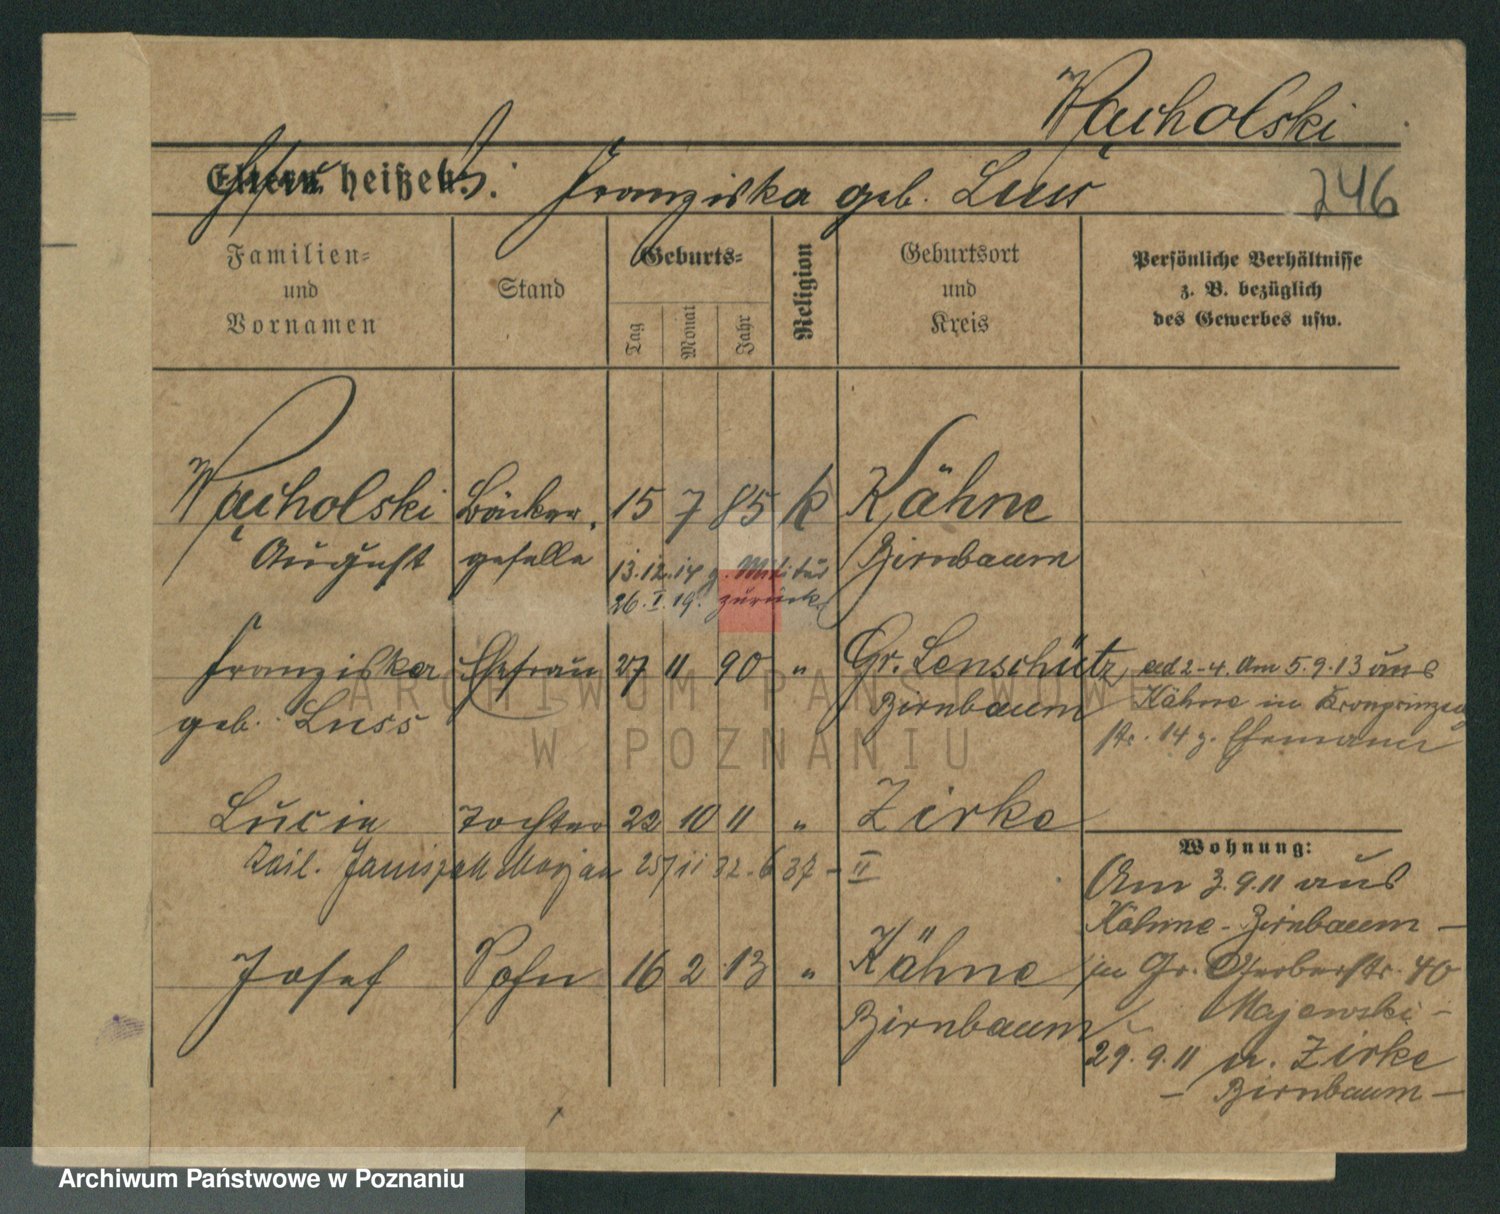 Wacholski
Eltern heißen: Franziska geb. Luss
246
Familien- und Vornamen
Stand
Geburts-
Tag
Monat
Jahr
Religion
Geburtsort und Kreis
Persönliche Verhältnisse
z. B. bezüglich
des Gewerbes usw.
Wacholski Bäcker- 15 7 85 k Kähne
August geselle Birnbaum
13.12.14 z. Militär
26.I.19. zurück
Franziska Ehefrau 27 11 90 " Gr. Lenschütz
geb. Luss Birnbaum
ad 2-4. Am 5.9.13 aus
Kähne in Kronprinzen
str. 14 z. Ehemann
Lucia Tochter 22 10 11 " Zirke
Marjan 25/11 32. 6 37 - II
Josef Sohn 16 2 13 " Kähne
Birnbaum
Wohnung:
Am 3.9.11 aus
Kähne - Birnbaum -
in Gr. Gerberstr. 40
Majewski -
29.9.11 n. Zirke
- Birnbaum -
ARCHIWUM PAŃSTWOWE
W POZNANIU
Archiwum Państwowe w Poznaniu